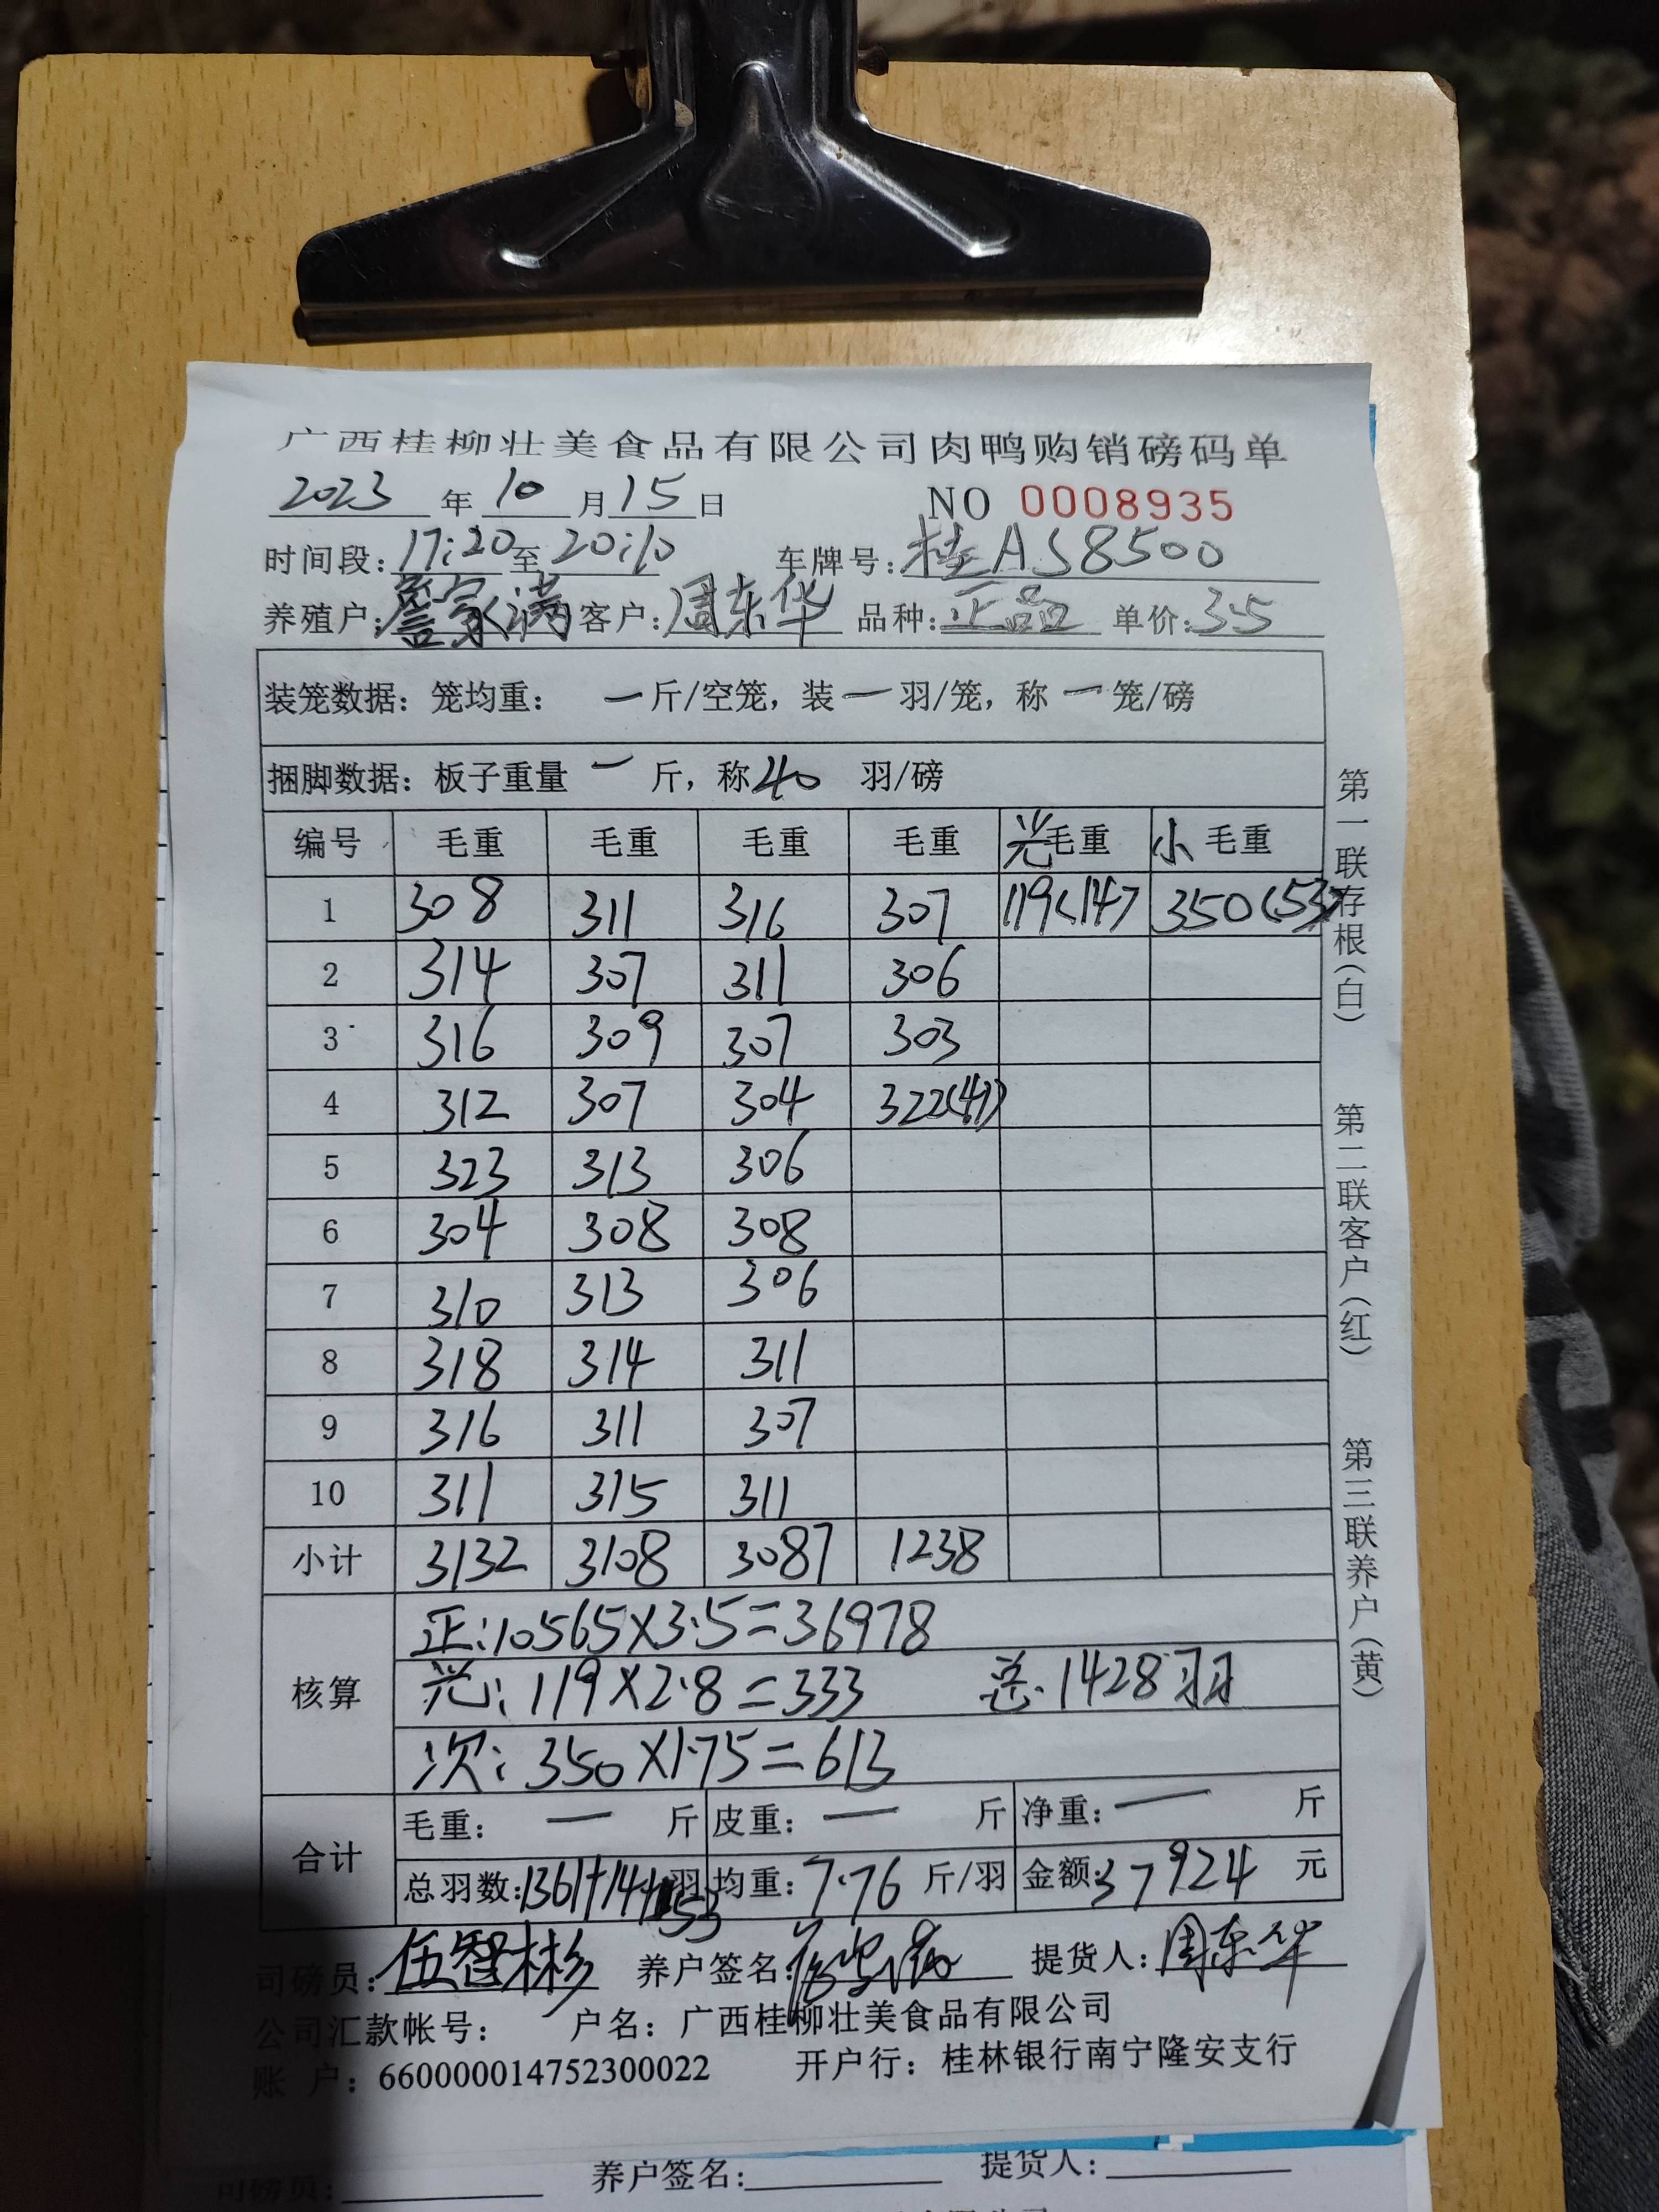 广西桂柳壮美食品有限公司肉鸭购销磅码单
2023 年 10 月 15 日 NO 0008935
时间段: 17:20 至 20:10 车牌号: 桂AS8500
养殖户: 詹家满 客户: 周东华 品种: 正品 单价: 3.5
装笼数据: 笼均重: 一 斤/空笼, 装 一 羽/笼, 称 一 笼/磅
捆脚数据: 板子重量 一 斤, 称 40 羽/磅
编号 毛重 毛重 毛重 毛重 光毛重 小毛重
1 308 311 316 307 119<14> 350<53>
2 314 307 311 306
3 316 309 307 303
4 312 307 304 322(41)
5 323 313 306
6 304 308 308
7 310 313 306
8 318 314 311
9 316 311 307
10 311 315 311
小计 3132 3108 3087 1238
核算 正:10565×3.5=36978
光:119×2.8=333 总.1428羽
次:350×1.75=613
合计 毛重: 一 斤 皮重: 一 斤 净重: 一 斤
总羽数: 1361+14+53 羽 均重: 7.76 斤/羽 金额: 37924 元
司磅员: 伍智彬 养户签名: 提货人: 周东华
公司汇款帐号: 户名: 广西桂柳壮美食品有限公司
账 户: 660000014752300022 开户行: 桂林银行南宁隆安支行
第一联存根(白)
第二联客户(红)
第三联养户(黄)
司磅员: 养户签名: 提货人: